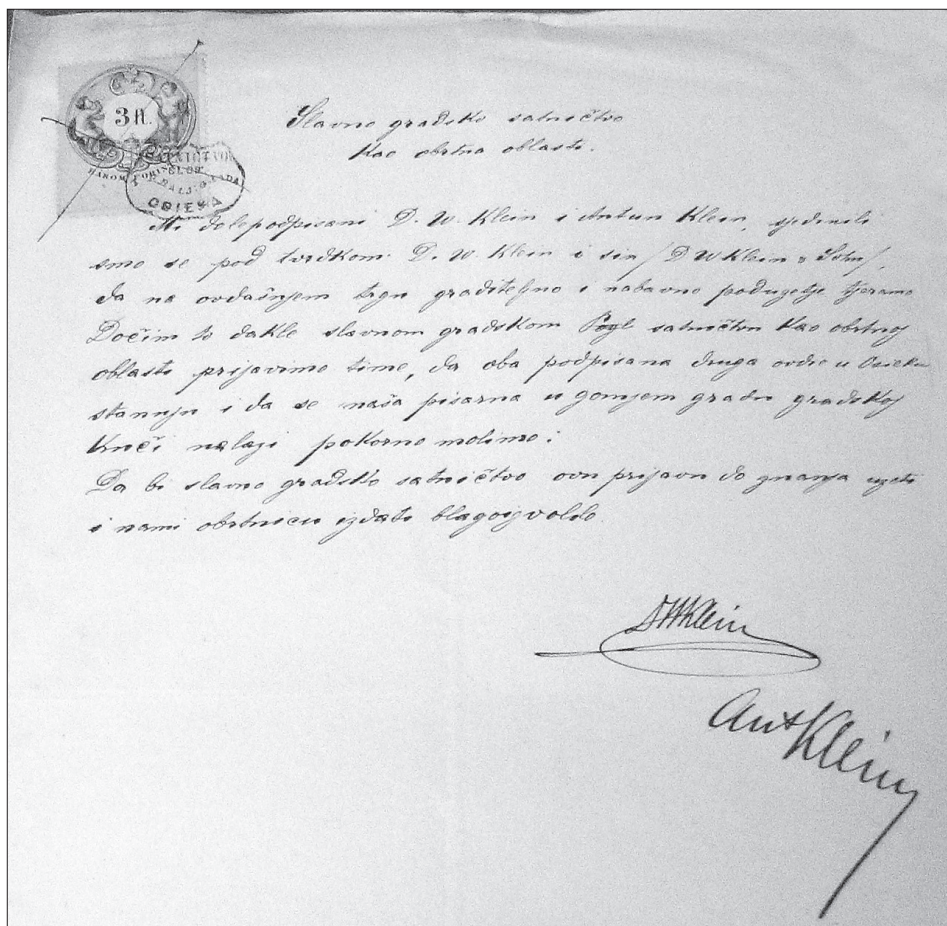 3 fl.
HÁROM FORINT
OSIEKA
Slavno gradsko satničtvo
kao obrtna oblast.
Mi dolepodpisani D. W. Klein i Antun Klein, sjedinili
smo se pod tvrdkom: D. W. Klein i sin /D W Klein & Sohn/,
da na ovdašnjem trgu graditeljno i nabavno poduzetje tjeramo
Dočim to dakle slavnom gradskom Pogl satničtvu kao obrtnoj
oblasti prijavimo time, da oba podpisana druga ovdje u Osieku
stanuju i da se naša pisarna u gornjem gradu gradskoj
kući nalazi pokorno molimo:
Da bi slavno gradsko satničtvo ovu prijavu do znanja uzeti
i nami obrtnicu izdati blagoizvolilo
DW Klein
Ant Klein